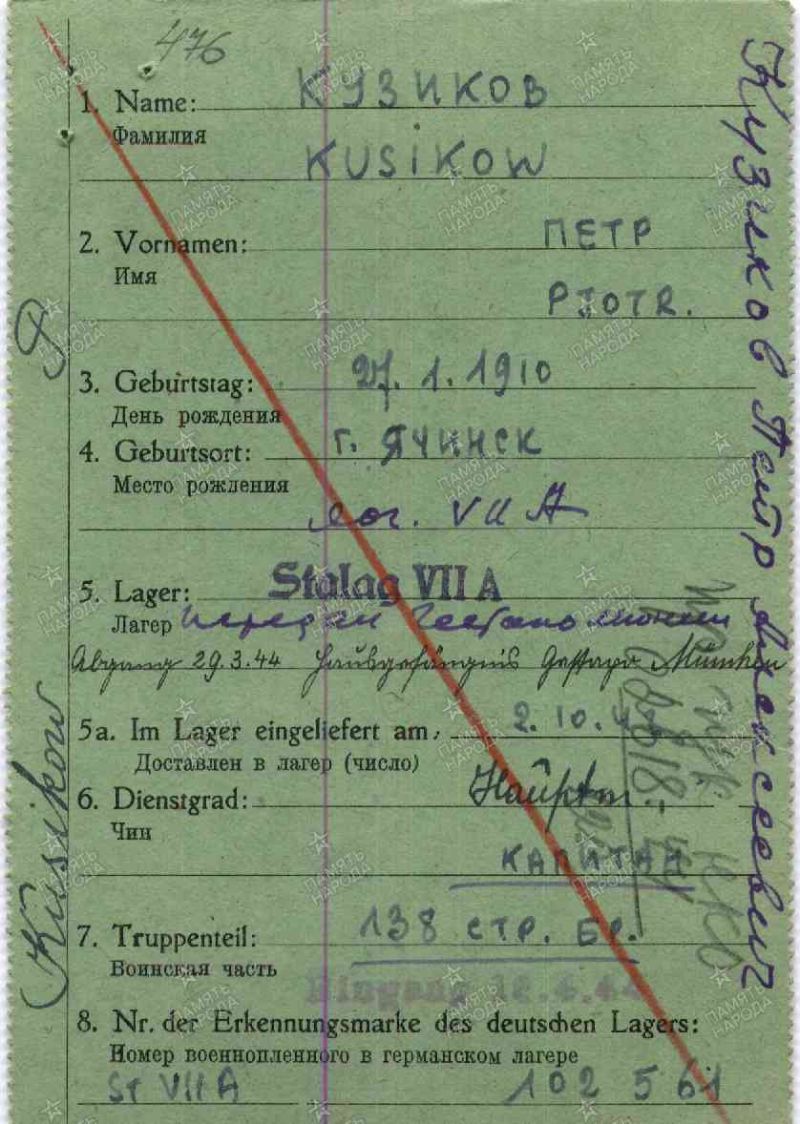 476
1. Name: КУЗИКОВ
Фамилия KUSIKOW
2. Vornamen: ПЕТР
Имя PJOTR.
3. Geburtstag: 27. 1. 1910
День рождения
4. Geburtsort: г. ЯЧИНСК
Место рождения
лаг. VII A
5. Lager: Stalag VII A
Лагер передан Гестапо
Abgang 29.3.44 Hausgefängnis Gestapo München
5a. Im Lager eingeliefert am: 2. 10.
Доставлен в лагер (число)
6. Dienstgrad: Hauptm.
Чин
КАПИТАН
7. Truppenteil: 138 СТР. БР.
Воинская часть
Eingang
8. Nr. der Erkennungsmarke des deutschen Lagers:
Номер военнопленного в германском лагере
St VII A 102 561
Кузиков Петр Алексеевич
Kusikow P
ПАМЯТЬ НАРОДА